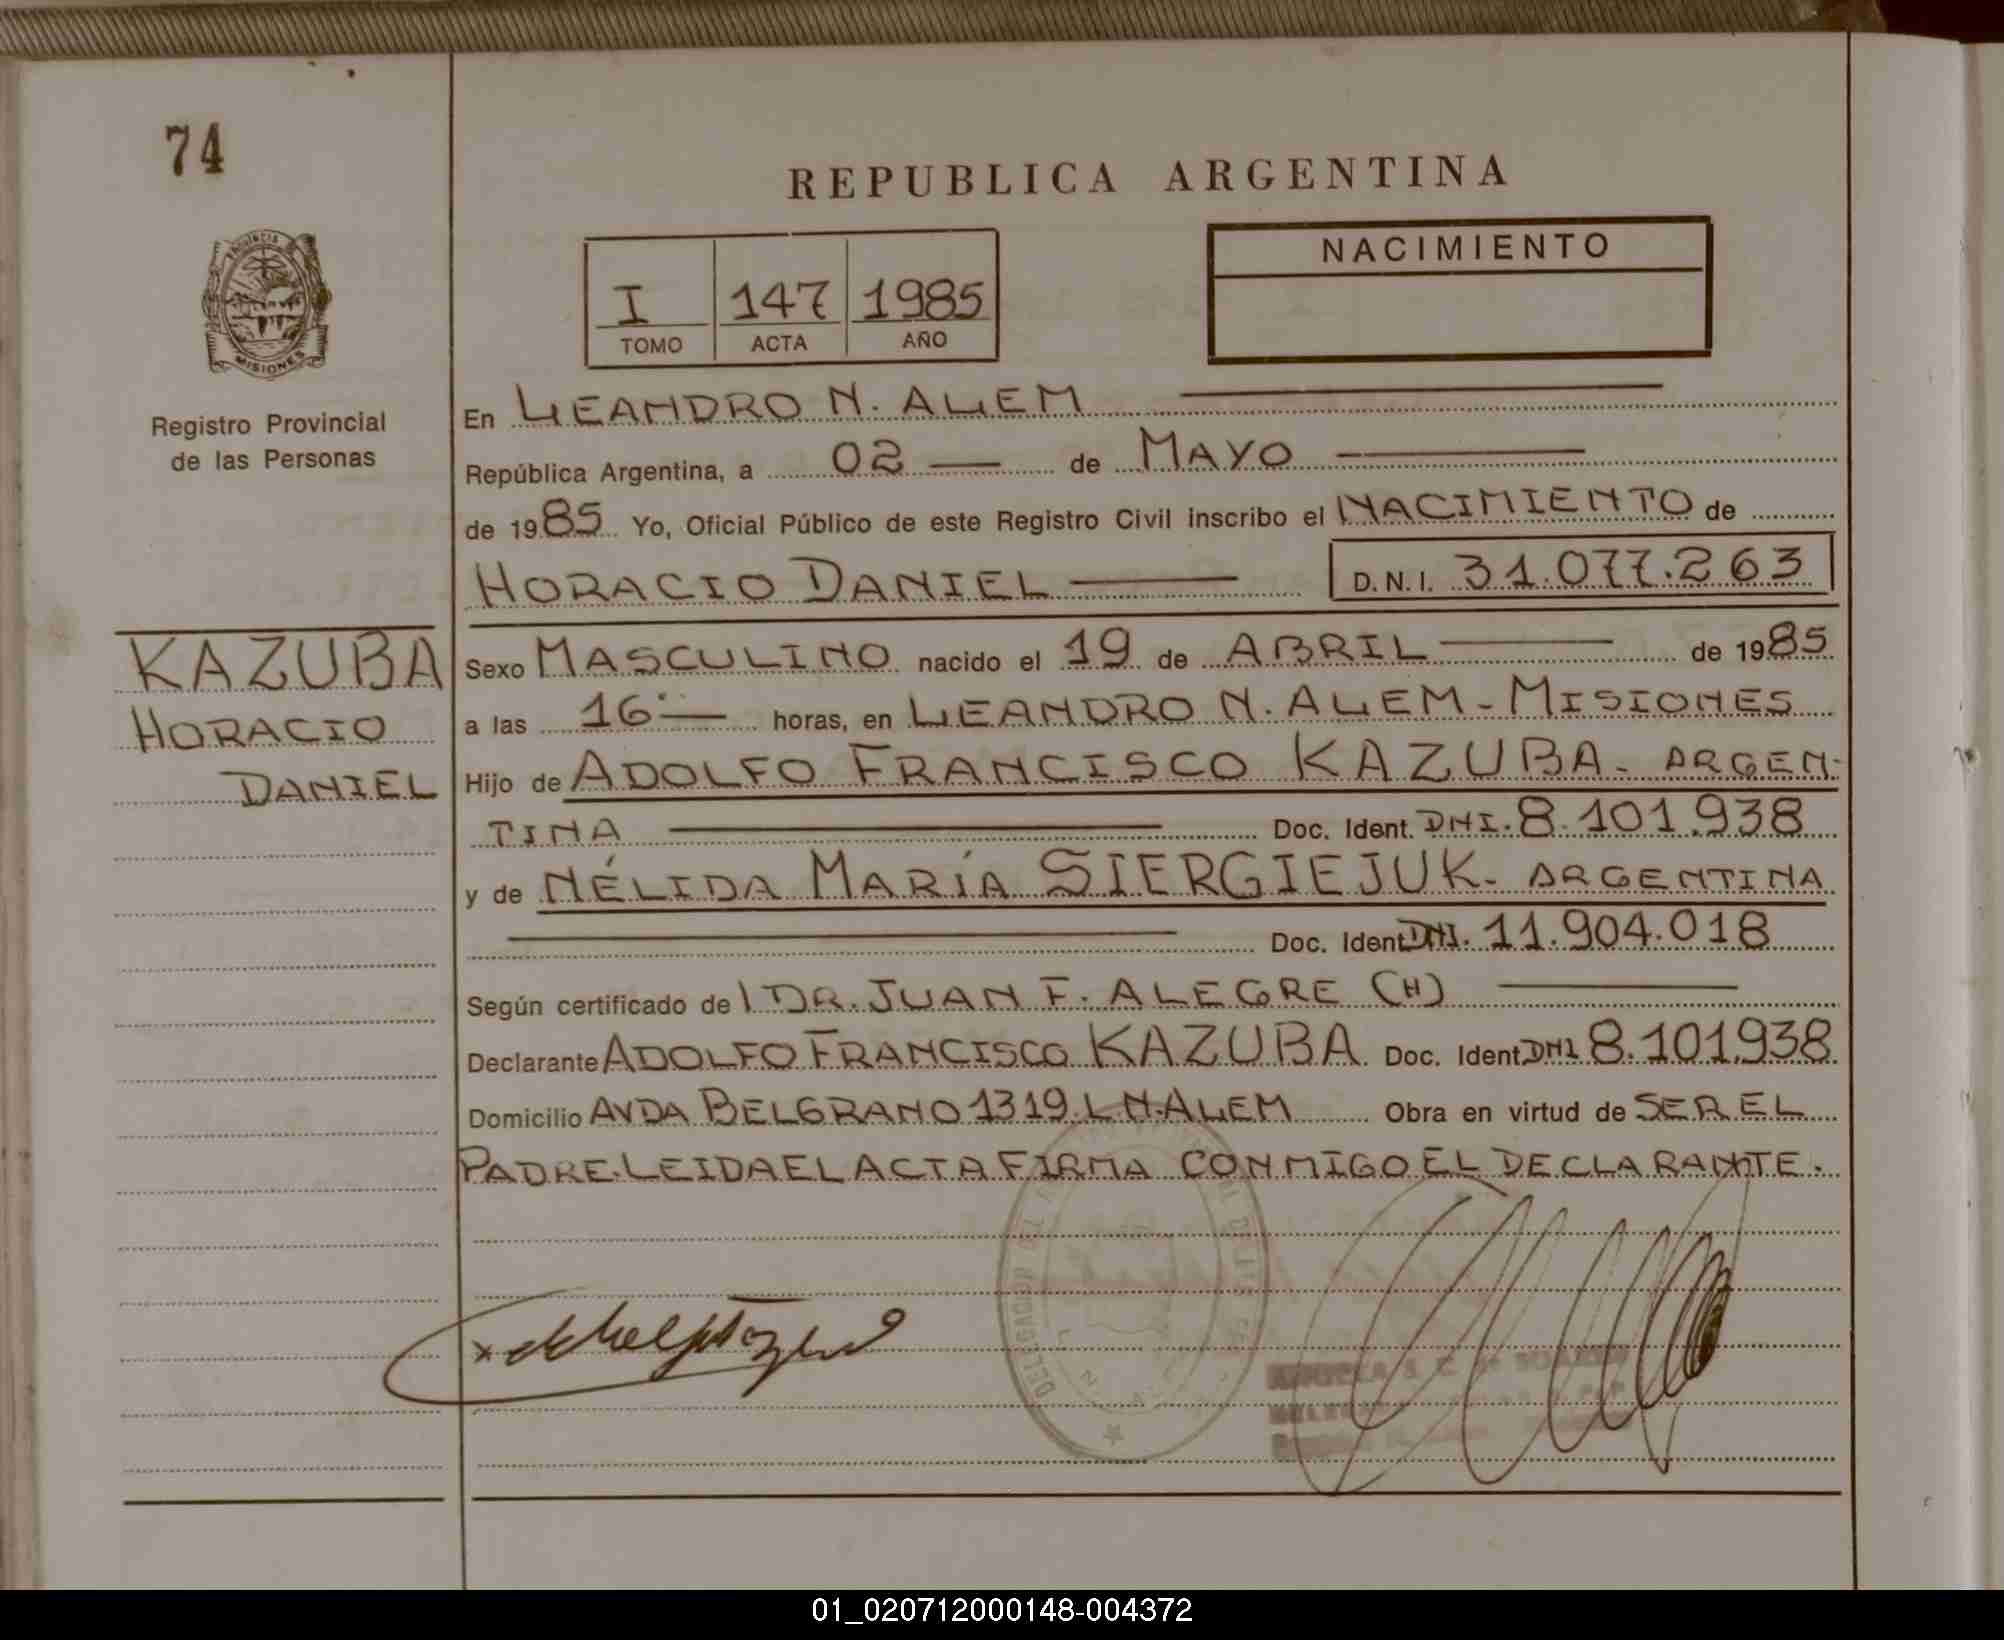 74
REPUBLICA ARGENTINA
NACIMIENTO
I 147 1985
TOMO ACTA AÑO
MISIONES
Registro Provincial
de las Personas
KAZUBA
HORACIO
DANIEL
En LEANDRO N. ALEM
República Argentina, a 02 de MAYO
de 1985 Yo, Oficial Público de este Registro Civil inscribo el NACIMIENTO de
HORACIO DANIEL D.N.I. 31.077.263
Sexo MASCULINO nacido el 19 de ABRIL de 1985
a las 16 horas, en LEANDRO N. ALEM - MISIONES
Hijo de ADOLFO FRANCISCO KAZUBA - ARGEN-
TINA Doc. Ident. DNI. 8.101.938
y de NÉLIDA MARÍA SIERGIEJUK - ARGENTINA
Doc. Ident DNI. 11.904.018
Según certificado de DR. JUAN F. ALEGRE (H)
Declarante ADOLFO FRANCISCO KAZUBA Doc. Ident. DNI 8.101.938
Domicilio AVDA BELGRANO 1319 L N. ALEM Obra en virtud de SER EL
PADRE. LEIDA EL ACTA FIRMA CONMIGO EL DECLARANTE.
01_020712000148-004372